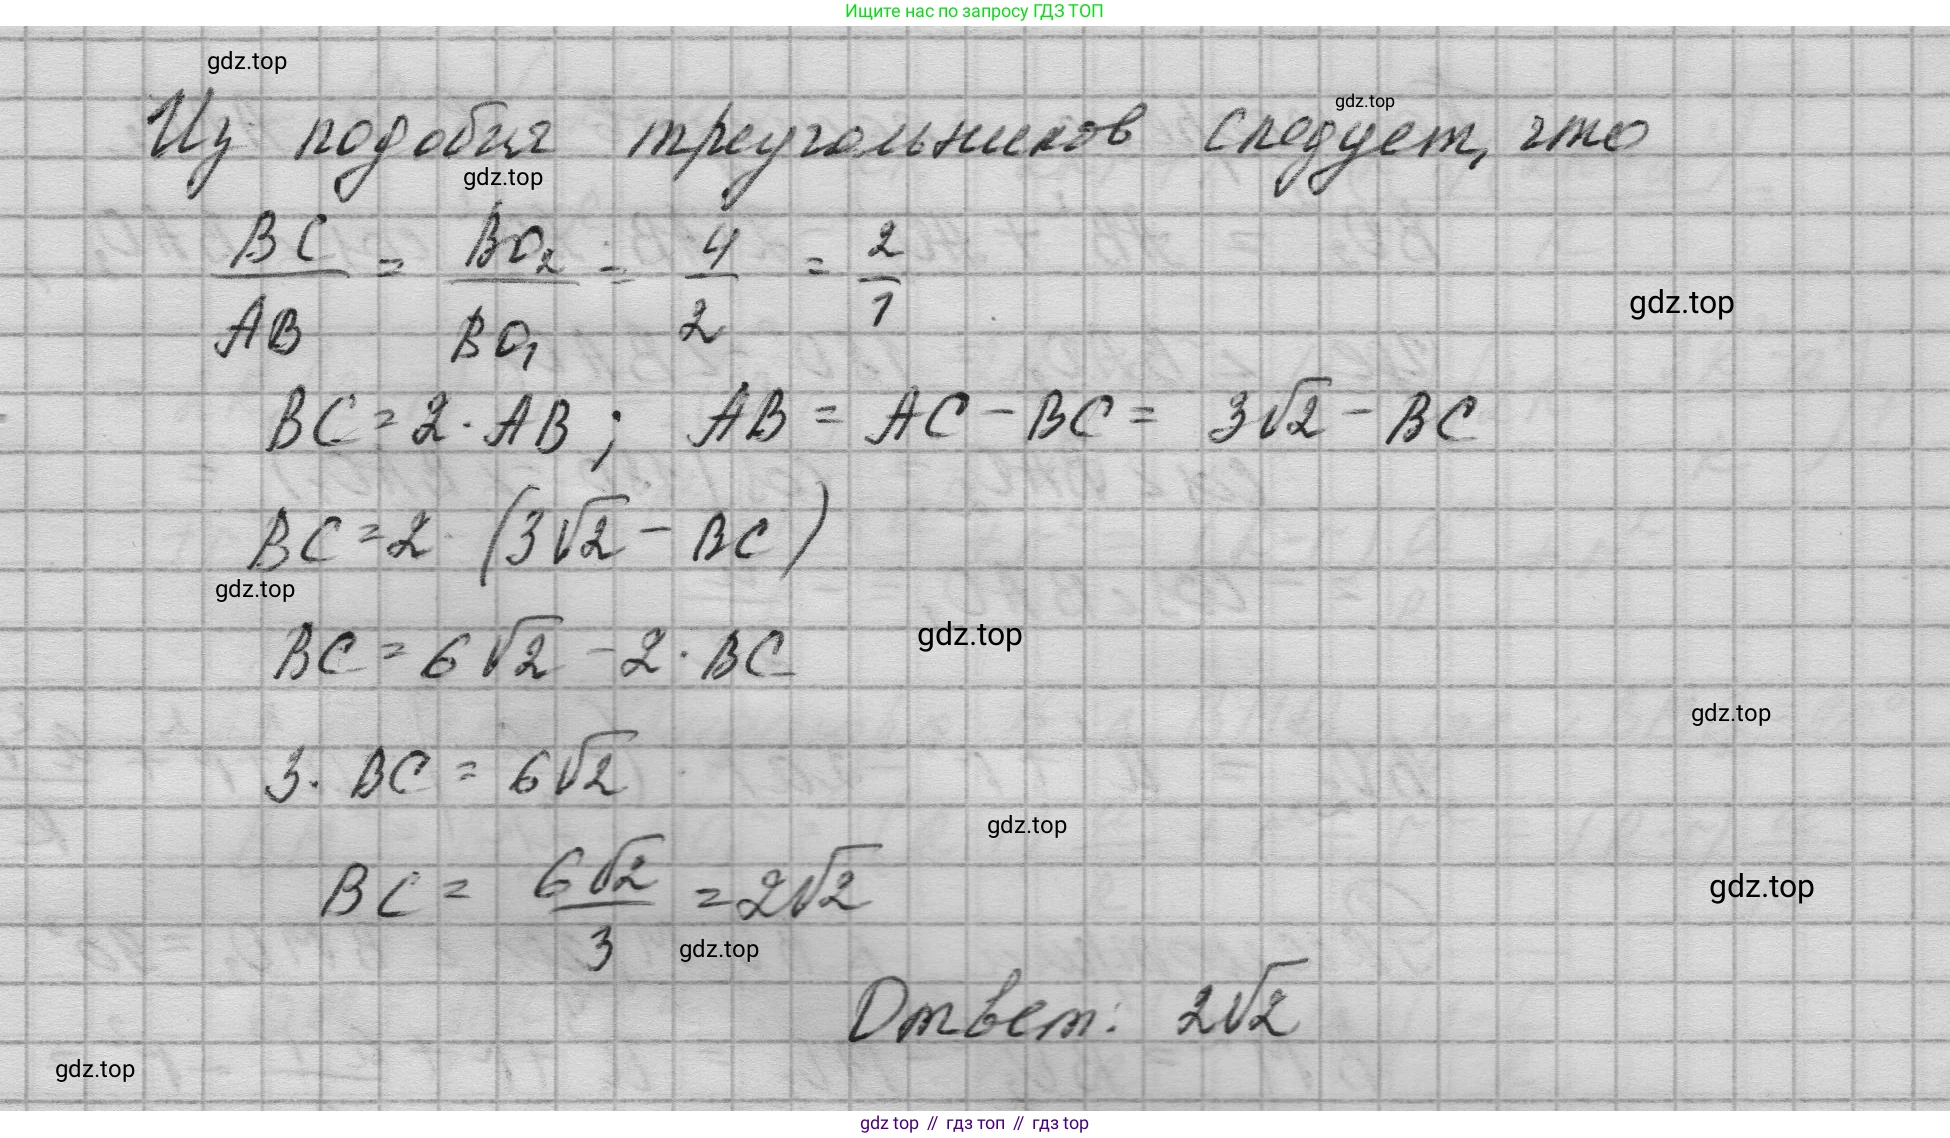 Ищите нас по запросу ГДЗ ТОП
gdz.top
Из подобия треугольников следует, что
gdz.top
gdz.top
BC/AB = BO₂/BO₁ = 4/2 = 2/1
gdz.top
BC = 2 · AB ; AB = AC − BC = 3√2 − BC
BC = 2 (3√2 − BC)
gdz.top
BC = 6√2 − 2 · BC
gdz.top
gdz.top
3 · BC = 6√2
gdz.top
BC = 6√2/3 = 2√2
gdz.top
gdz.top
Ответ: 2√2
gdz.top
gdz top // гдз топ // гдз top